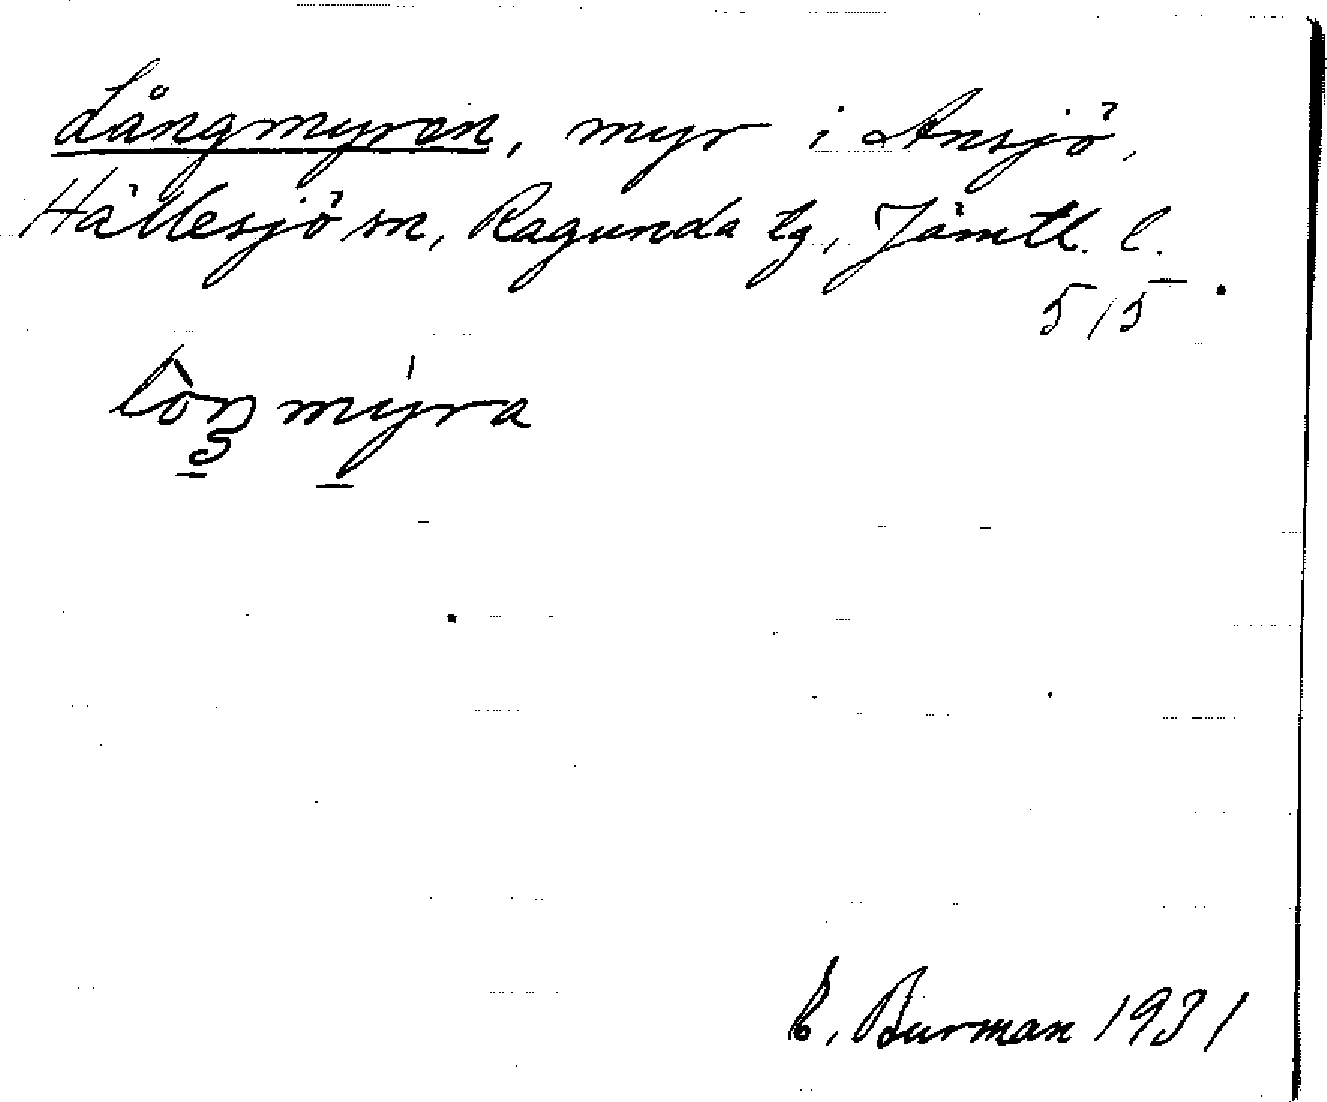 Långmyran, myr i Ansjö,
Hällesjö sn, Ragunda tg, Jämtl. l.
5/5.
lòŋmýra
E. Burman 1931